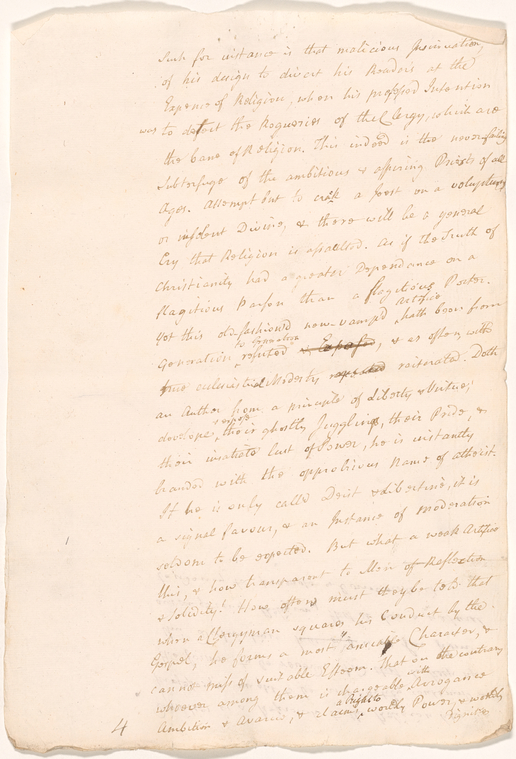 Such for instance is that malicious Insinuation,
of his design to divert his Readers at the
Expence of Religion, when his professed Intention
was to detect the Rogueries of the Clergy, which are
the bane of Religion. This indeed is the never failing
Subterfuge of the ambitious & aspiring Priests of all
Ages. Attempt but to crack a jest on a voluptuary
or insolent Divine, & there will be a general
Cry that Religion is assaulted. As if the Truth of
Christianity had a greater Dependance on a
flagitious Parson than a flagitious Porter.
Yet this old-fashioned new-vamped Artifice hath been from
Generation to Generation refuted, & as often with
true ecclesiastical Modesty reiterated. Doth
an Author from a principle of Liberty & Virtue,
develope, expose their ghostly Juggling, their Pride, &
their insatiate lust of Power, he is instantly
branded with the opprobrious Name of atheist.
If he is only called Deist & libertine, it is
a signal favour, & an Instance of Moderation
seldom to be expected. But what a weak Artifice
this, & how transparent to Men of Reflection
& solidity! How often must they be told that
when a Clergyman squares his Conduct by the
Gospel, he forms a most amiable Character, &
cannot miss of suitable Esteem. That on the contrary
whoever among them is with Arrogance
Ambition & Avarice, & claims a Right to worldly Power, & worldly
4